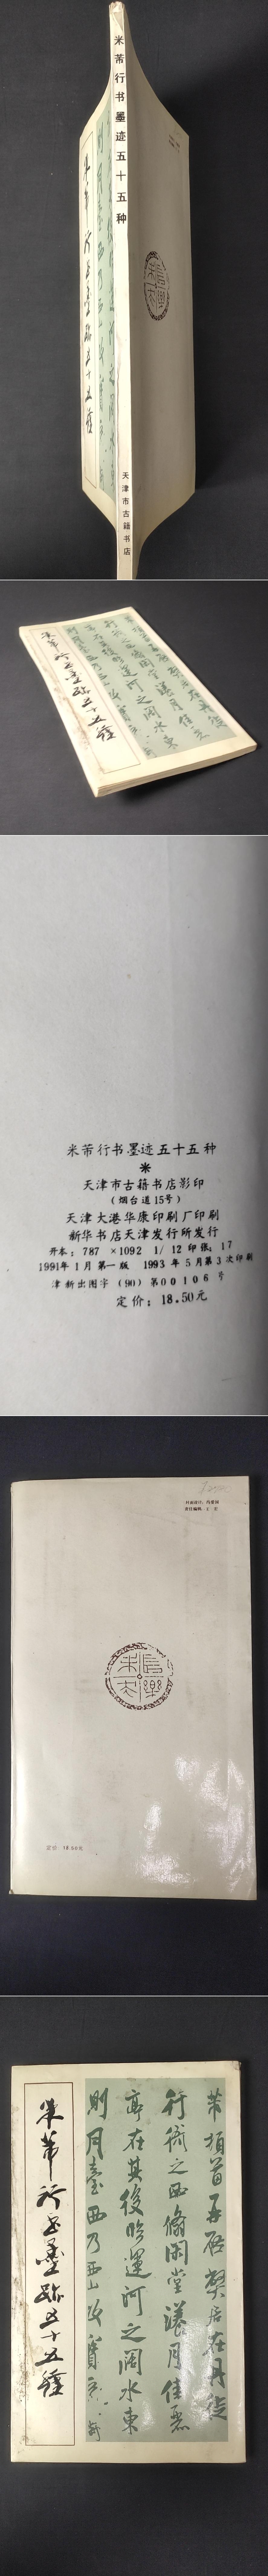 米芾行书墨迹五十五种
天津市古籍书店
米芾行书墨迹五十五種
米芾行书墨迹五十五种
天津市古籍书店影印
(烟台道15号)
天津大港华康印刷厂印刷
新华书店天津发行所发行
开本:787×1092 1/12 印张:17
1991年1月第一版 1993年5月第3次印刷
津新出图字(90)第00106号
定价:18.50元
定价 18.50元
米芾行书墨迹五十五種
芾頓首再啓弊居在丹徒
行衙之西翛閑堂漾月佳麗
亭在其後臨運河之闊水東
則月臺西乃西山故寶